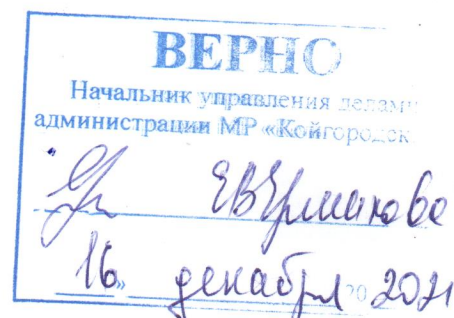 ВЕРНО
Начальник управления делами
администрации МР «Койгородск
ЕВЕрмакова
16 » декабря 20 2021